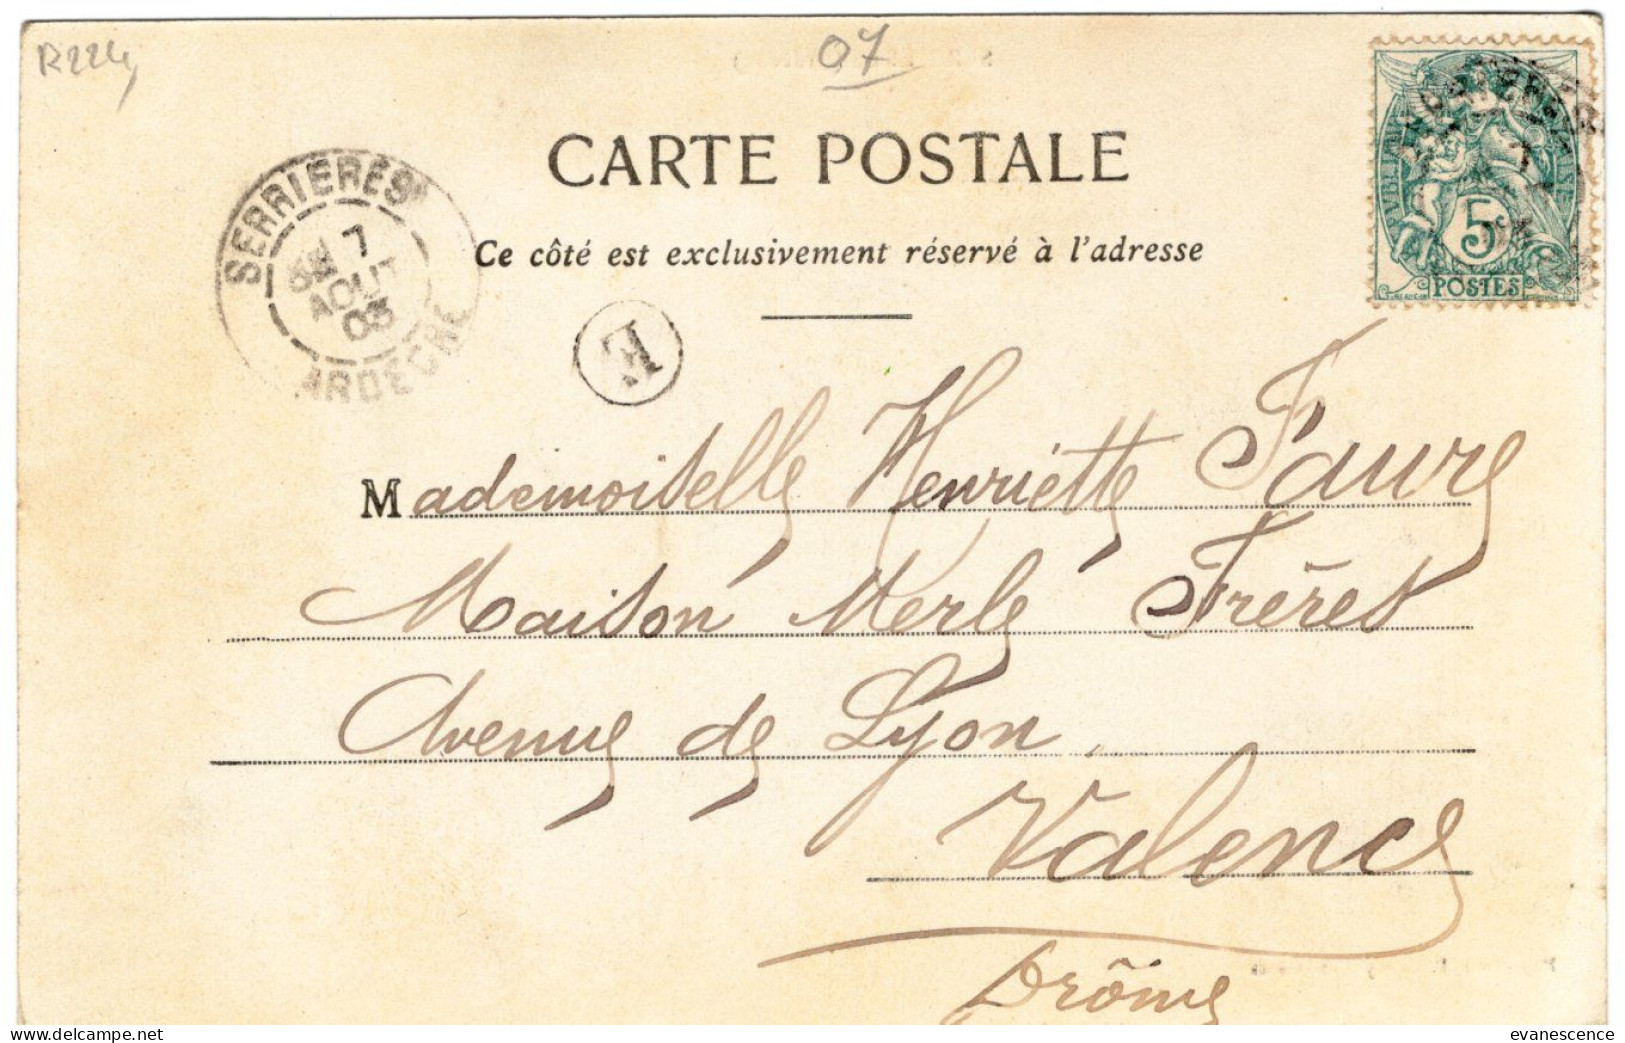 R224
07
CARTE POSTALE
Ce côté est exclusivement réservé à l'adresse
SERRIERES
7
AOUT
03
ARDECHE
E
5c
POSTES
Mademoiselle Henriette Faure
Maison Merle Frères
Avenue de Lyon
Valence
Drôme
evanescence